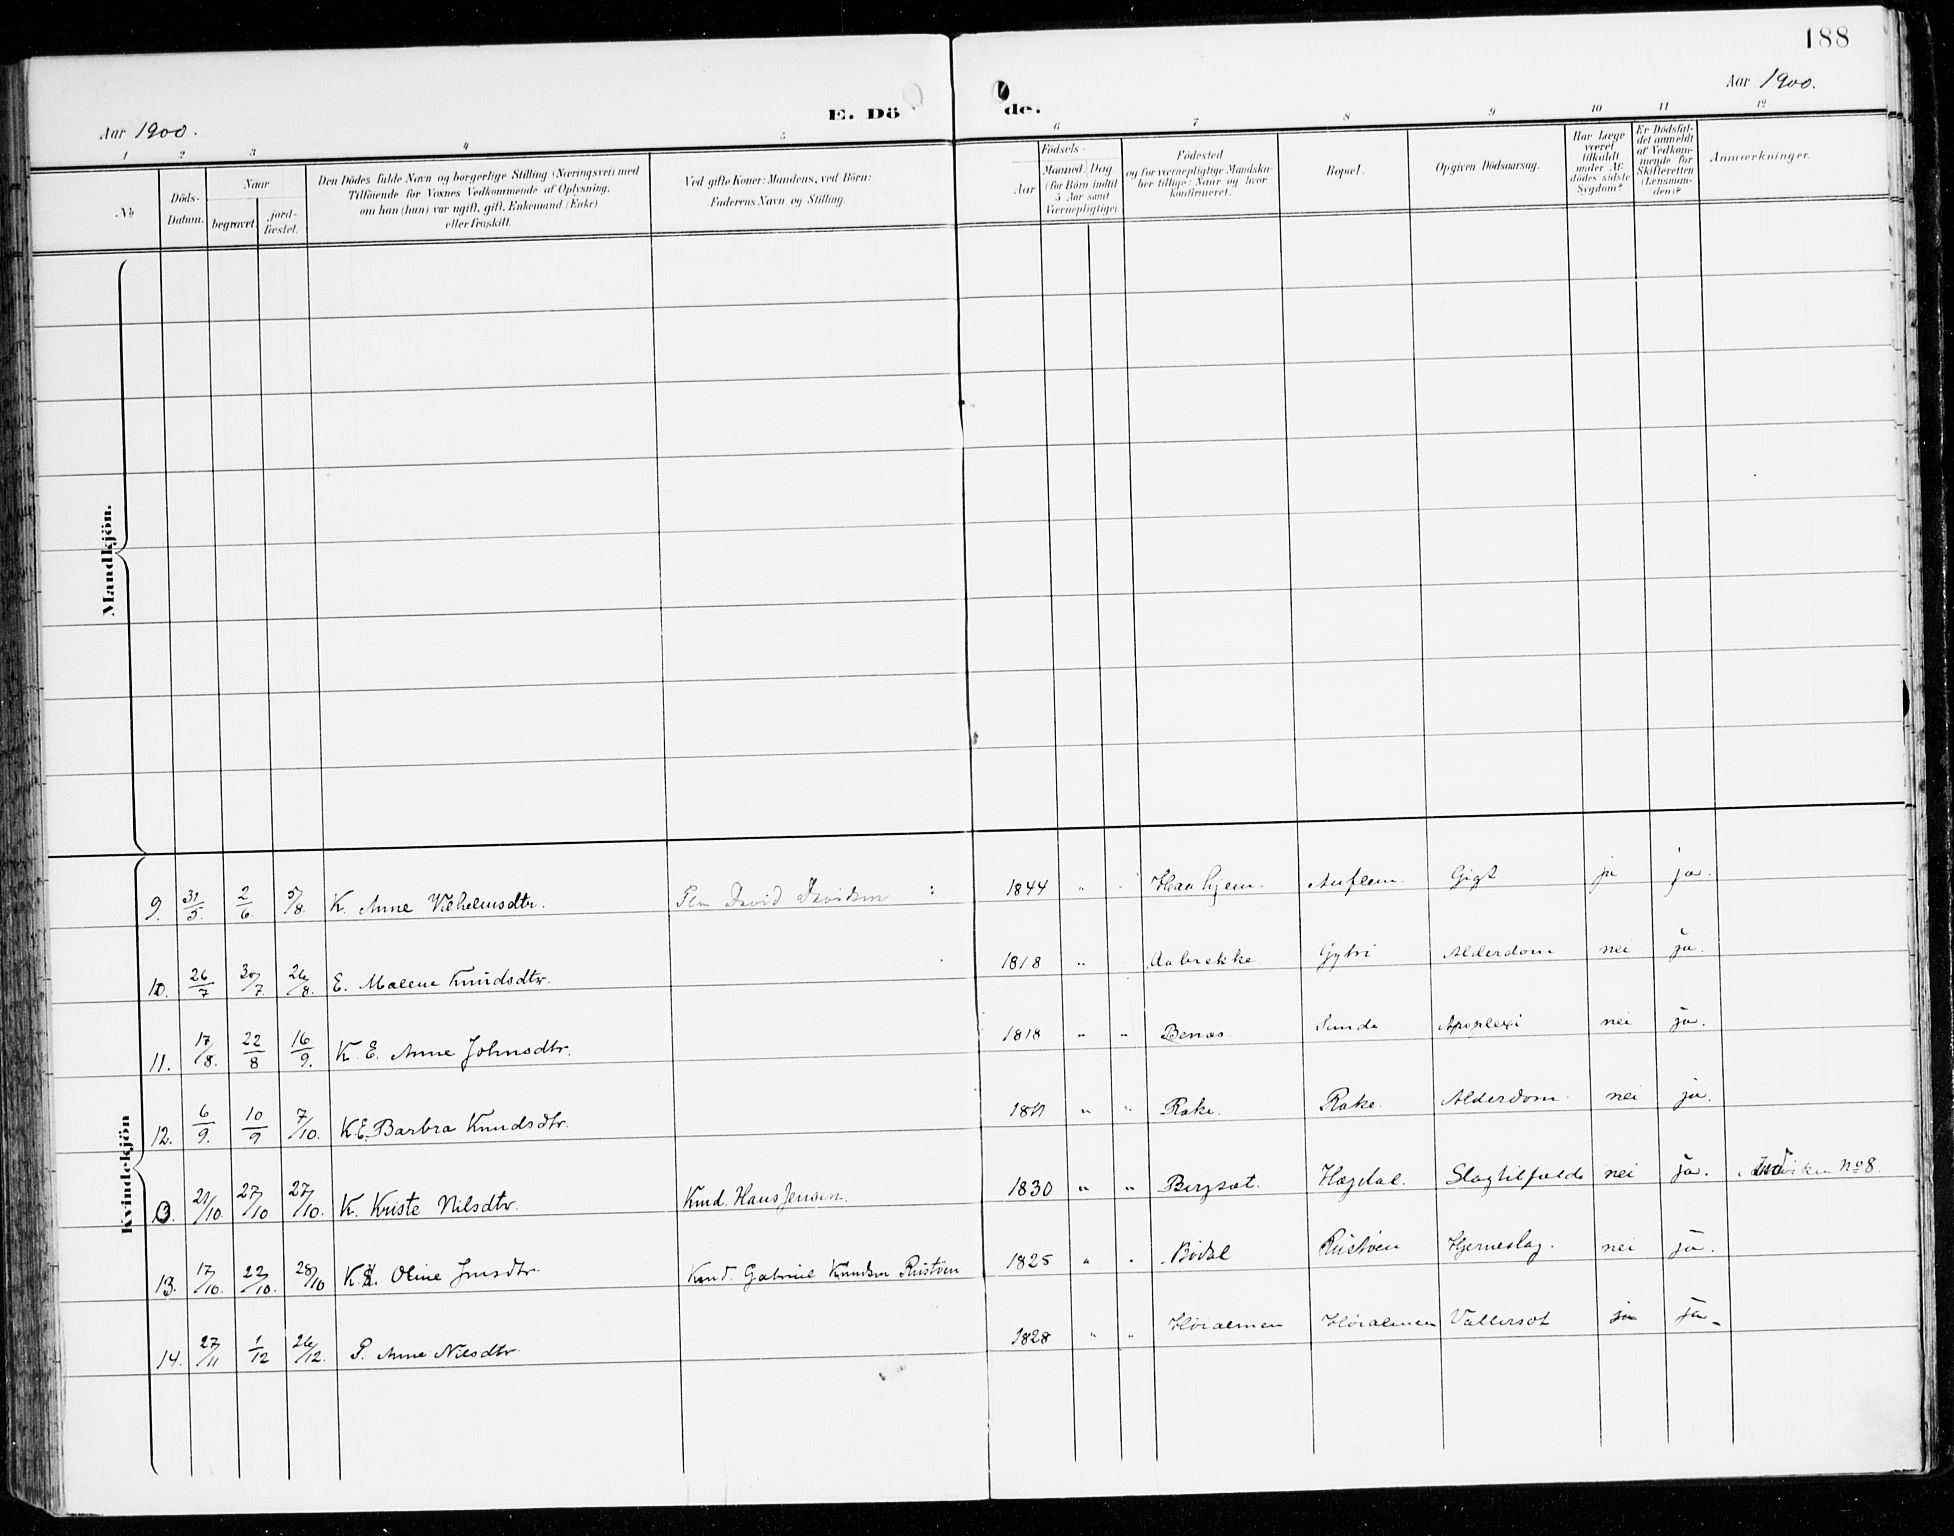 188
Aar 1900.
E. Dö de.
Aar 1900.
1 2 3 4 5 6 7 8 9 10 11 12
No
Döds-Datum.
Naar
begravet.
jord-fæstet.
Den Dödes fulde Navn og borgerlige Stilling (Næringsvei) med
Tilföiende for Voxnes Vedkommende af Oplysning,
om han (hun) var ugift, gift, Enkemand (Enke)
eller fraskilt.
Ved gifte Koner: Mandens, ved Börn:
Faderens Navn og Stilling.
Födsels-
Aar
Maaned. Dag
(for Börn indtil
5 Aar samt
Værnepligtige)
Födested
og for værnepligtige Mandska-
ber tillige: Naar og hvor
konfirmeret.
Bopæl.
Opgiven Dödsaarsag.
Har Læge
været
tilkaldt
under Af-
dödes sidste
Sygdom?
Er Dödsfal-
det anmeldt
af Vedkom-
mende for
Skifteretten
(Lensman-
den)?
Anmærkninger.
Mandkjön.
Kvindekjön
9. 31/5. 2/6. 5/8. K. Anne Vilhelmsdtr. David Davidsen 1844 " Gigt. ja ja.
10. 26/7 30/7 26/8. E. Malene Knudsdtr. 1818 " Aabrekke Gytri Alderdom nei ja.
11. 17/8. 22/8 16/9. K. E. Anne Johnsdtr. 1818 " " Benæs. Sunde Apoplexi nei ja.
12. 6/9. 10/9 7/10. K.E. Barbra Knudsdtr. 1811 " " Rake. Rake. Alderdom. nei ja.
21/10 27/10 27/10. K. Kriste Nilsdtr. Kmd. Hans Jensen. 1830 " " Bergsæt. Hægdal. Slagtilfælde nei ja. No 8.
13. 17/10. 22/10. 28/10 K. Oline Jensdtr. Kmd. Gabriel Knudsen Rustöen 1825 " Bödal Rustöen Hjerneslag. nei ja.
14. 27/11 1/12 26/12. Anne Nilsdtr. 1828 " " Höialmen Höialmen Vattersot ja ja.